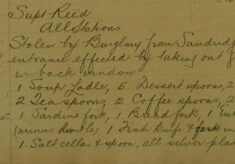 Supt Reed
All Stations
Stolen by Burglary from Sandrid
entrance effected by taking out
in back window
1 Soup Ladle, 6 Dessert spoons, 2
2 Tea spoons 2 Coffee spoons, 2
1 Sardine fork, 1 Bread fork, 1
1 Fish Knife & fork
1 Salt cellar & spoon, all silver pla